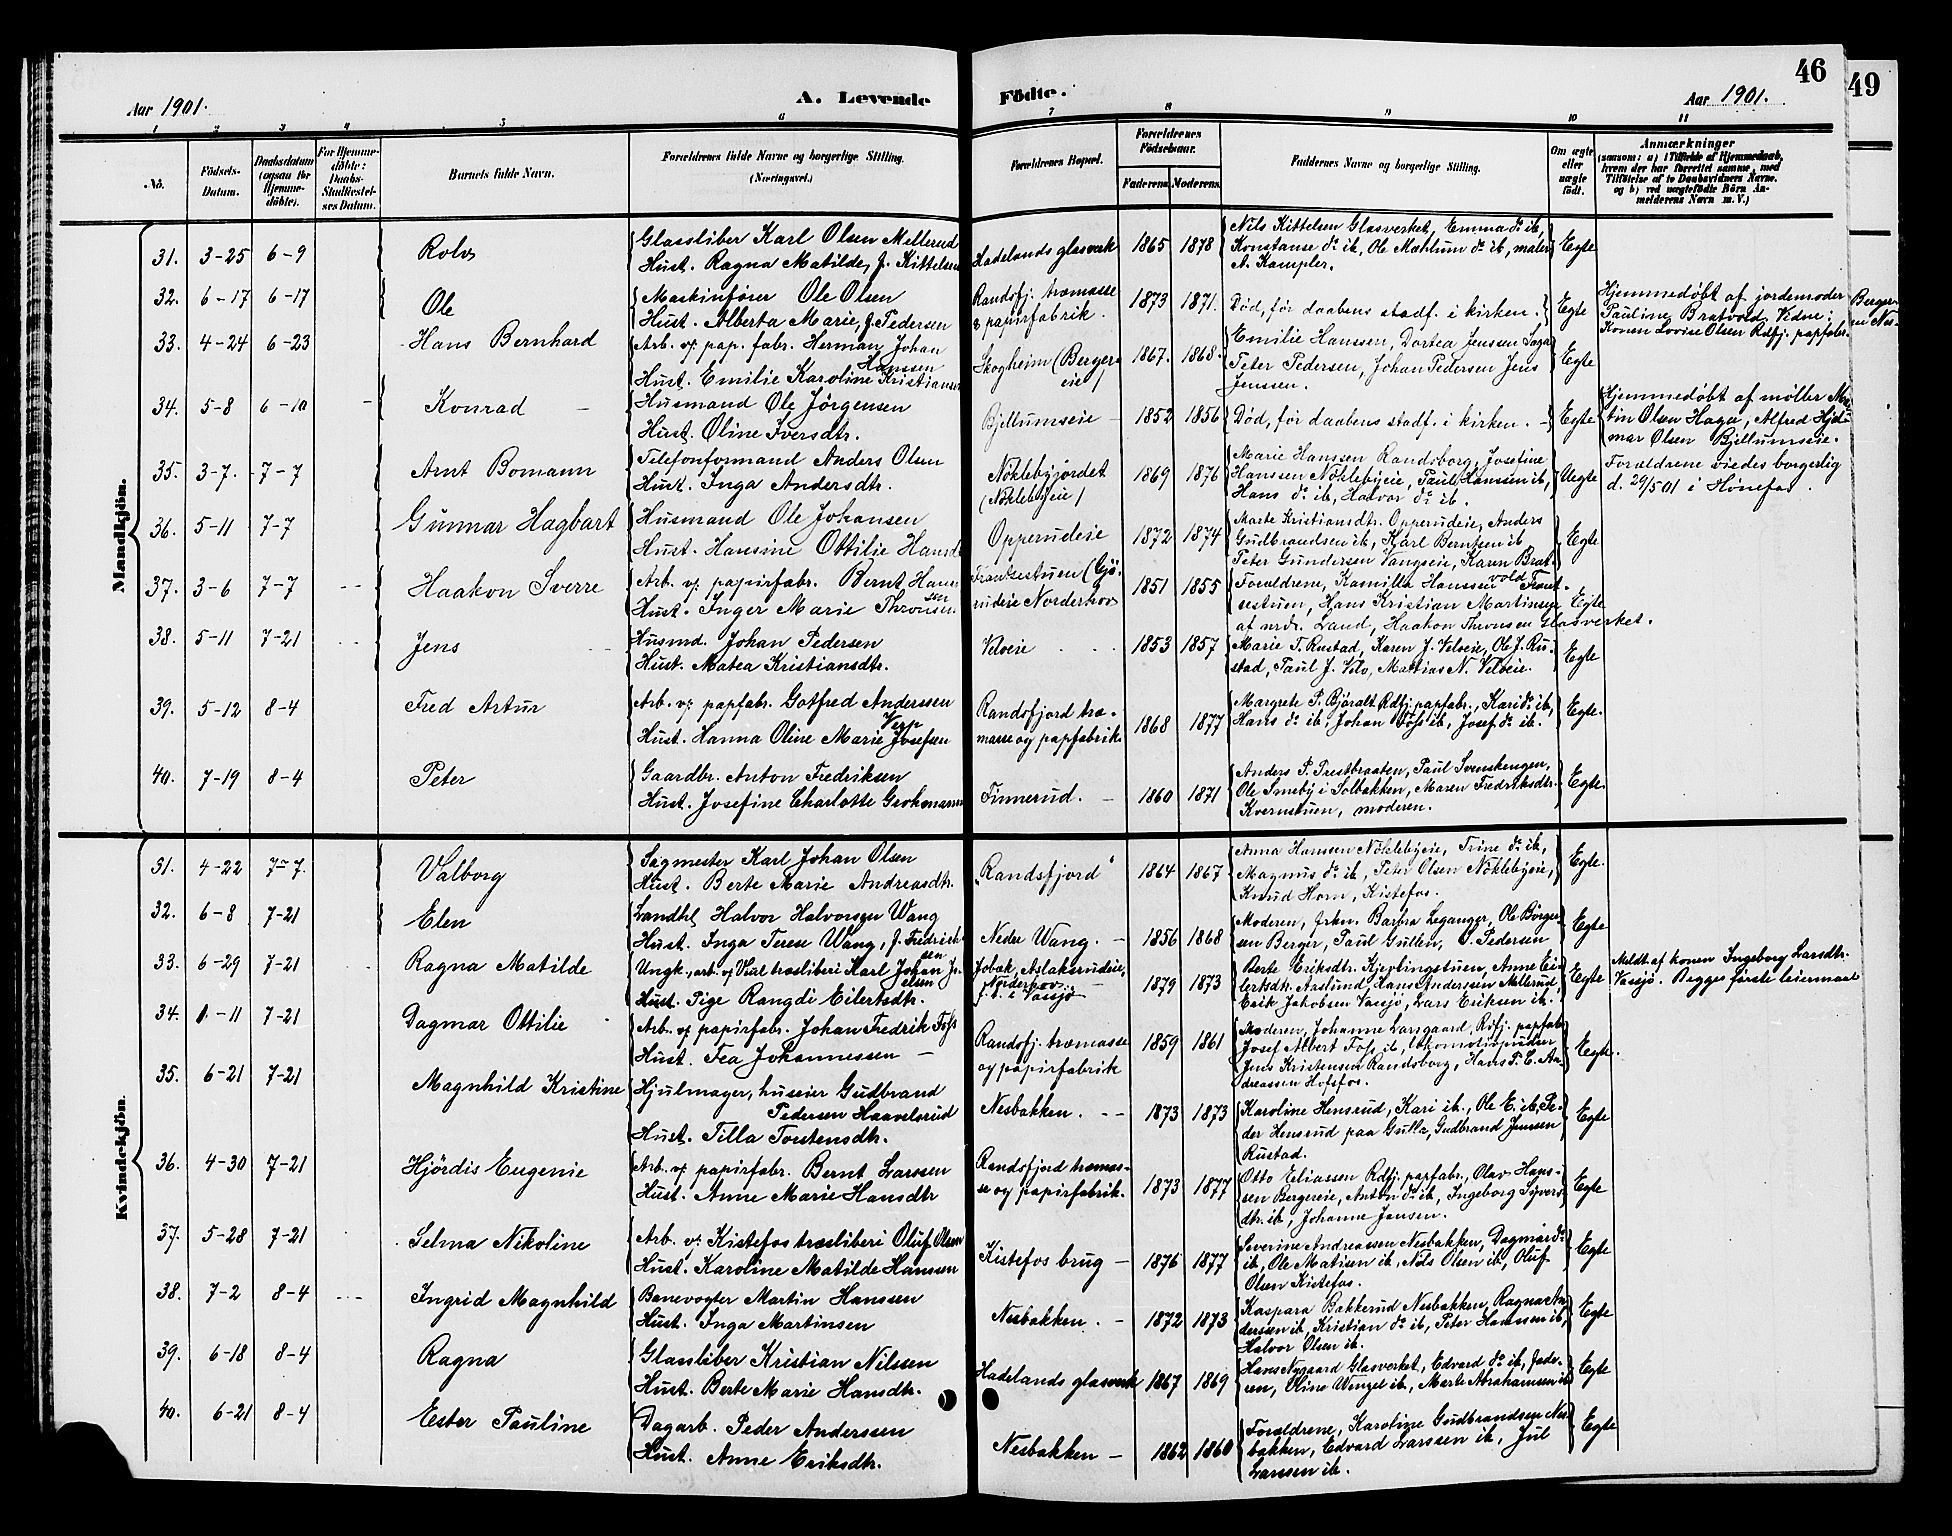 46
49
Aar 1901.
A. Levende Födte.
Aar 1901.
1 2 3 4 5 6 7 8 9 10 11
No.
Fødsels-
Datum.
Daabsdatum
(ogsaa for
Hjemme-
døbte).
For Hjemme-
döbte:
Daabs-
Stadfæstel-
ses Datum.
Barnets fulde Navn.
Forældrenes fulde Navne og borgerlige Stilling.
(Næringsvei.)
Forældrenes Bopæl.
Forældrenes
Födselsaar.
Faderens. Moderens.
Faddernes Navne og borgerlige Stilling.
Om ægte
eller
uægte
født.
Anmærkninger
(saasom: a) i Tilfælde af Hjemmedaab,
hvem der har forrettet samme, med
Tilføielse af to Daabsvidners Navne.
og b) ved uægtefødte Börn An-
melderens Navn m. V.)
Mandkjön.
31. 3-25 6-9 Rolv Glassliber Karl Olsen Mellerud
Hust. Ragna Matilde, f. Kittelsen
Hadelands glasverk 1865 1878
Nils Kittelsen Glasverket, Emma do ib,
Konstanse do ib, Ole Mæhlum do ib, maler
A. Kampler.
Egte
32. 6-17 6-17 Ole Maskinfører Ole Olsen
Hust. Alberta Marie, f. Pedersen
Randsfj. træmasse
& papirfabrik. 1873 1871.
Død, før daabens stadf. i kirken.
Egte
Hjemmedøbt af jordemoder
Pauline Bratvold. Vidne:
Konen Lovise Olsen Rdfj. papfabr.
33. 4-24 6-23 Hans Bernhard Arb. v. pap. fabr. Herman Johan
Hanssen
Hust. Emilie Karoline Kristiansen
Skogheim (Berger-
eie) 1867. 1868.
Emilie Hanssen, Dortea Jenssen Saga
Peter Pedersen, Johan Pedersen Jens
Jenssen.
Egte
34. 5-8 6-10 Konrad Husmand Ole Jörgensen
Hust. Oline Iversdtr.
Bjellumseie 1852 1856
Død, før daabens stadf. i kirken.
Egte
Hjemmedøbt af møller Mar-
tin Olsen Haga, Alfred Hjal-
mar Olsen Bjellumseie.
35. 3-7. 7-7 Arnt Bomann Telefonformand Anders Olsen
Hust. Inga Andersdtr.
Nøklebyjordet
(Nøklebyeie) 1869 1876
Marie Hanssen Randsborg, Josefine
Hanssen Nöklebyeie, Paul Hanssen ib,
Hans do ib, Halvor do ib.
Uegte
Forældrene viedes borgerlig
d. 29/5 01 i Hönefos.
36. 5-11 7-7 Gunnar Hagbart Husmand Ole Johansen
Hust. Hansine Ottilie Hansd
Opperudeie 1872 1874
Marte Kristiansdtr. Opperudeie, Anders
Gudbrandsen ib, Karl Berntsen ib
Peter Gundersen Vangseie, Karen Brat-
vold
Egte
37. 3-6 7-7 Haakon Sverre Arb. v. papirfabr. Bernt Hans-
sen
Hust. Inger Marie Thronsen
1851 1855
Forældrene, Kamilla Hanssen
Hans Kristian Martinsen
af nrdr. Land, Haakon Thronsen Glasverket.
Egte
38. 5-11 7-21 Jens Husmd. Johan Pedersen
Hust. Matea Kristiansdtr.
Velveie 1853 1857
Marie T. Rustad, Karen J. Velveie, Ole J. Ru-
stad, Paul J. Velv, Mattias N. Velveie.
Egte
39. 5-12 8-4 Fred Artur Arb. v. papfabr. Gotfred Anderssen
Hust. Hanna Oline Marie Josefsen
Randsfjord træ-
masse og papfabrik. 1868 1877
Margrete P. Björalt Rdfj. papfabr., Kari do ib,
Hans do ib, Johan Foss ib, Josef do ib.
Egte.
40. 7-19 8-4 Peter Gaardbr. Anton Fredriksen
Hust. Josefine Charlotte Grohmann
Finnerud. 1860 1871
Anders P. Prestbraaten, Paul Svenskengen,
Ole Smeby i Solbakken, Maren Fredriksdtr.
Kvernstuen, moderen.
Egte.
Kvindekjön.
31. 4-22 7-7. Valborg Sagmester Karl Johan Olsen
Hust. Berte Marie Andreasdtr.
"Randsfjord" 1864 1867
Anna Hanssen Nöklebyeie, Trine do ib,
Magnus do ib, Peter Olsen Nöklebyeie,
Knud Horn, Kistefos.
Egte.
32. 6-8 7-21 Elen Landhl. Halvor Halvorsen Wang
Hust. Inga Terese Wang, f. Fredrik-
sen
Nedre Wang. 1856 1868
Moderen, frkn. Barbra Leganger, Ole Börger-
sen Berger, Paul Gullen, O. Pedersen
Egte
33. 6-29 7-21 Ragna Matilde Ungk., arb. v. Viul træsliberi Karl Johan Ja-
Hust. Pige Rangdi Eilertsdtr.
Aslaksrudeie,
Norderhov
f. t. i Vassjø 1879 1873
Berte Eriksdtr. Kjevlingstuen, Anne Ei-
lertsdtr. Aaslund, Hans Anderssen Mellerud,
Erik Jakobsen Vassjø, Lars Eriksen ib.
Egte
Meldt af konen Ingeborg Larsdtr.
Vassjø. Begge første leiermaal
34. 1-11 7-21 Dagmar Ottilie Arb. v. papirfabr. Johan Fredrik Foss
Hust. Fea Johannessen
Randsfj. træmasse
og papirfabrik 1859 1861
Moderen, Johanne Langaard, Rdfj. papfabr
Josef Albert Foss ib, lokomotivpudser
Jens Kristensen Randsborg, Hans P. C. An-
dreassen Hofsfos.
Egte.
35. 6-21 7-21 Magnhild Kristine Hjulmager, huseier Gudbrand
Pedersen Haavelsrud
Hust. Tilla Torstensdtr.
Nesbakken. 1873 1873
Karoline Hensrud, Kari ib., Ole E. ib, Pe-
der Hensrud paa Gulla, Gudbrand Jenssen
Rustad.
Egte
36. 4-30 7-21 Hjördis Eugenie Arb. v. papirfabr. Bernt Larssen
Hust. Anne Marie Hansdtr
Randsfjord træmas-
se og papirfabrik. 1873 1877
Otto Eliassen Rdfj. papfabr., Olav Hans-
sen Bergereie, Anton do ib, Ingeborg Syvers-
dtr. ib, Johanne Jensen.
Egte
37. 5-28 7-21 Selma Nikoline Arb. v. Kistefos træsliberi Oluf Olsen
Hust. Karoline Matilde Hanssen
Kistefos brug 1876 1877
Severine Andreassen Nesbakken, Dagmar do
ib, Ole Matisen ib, Nils Olsen ib, Oluf
Olsen Kistefos.
Egte
38. 7-2 8-4 Ingrid Magnhild Banevogter Martin Hanssen
Hust. Inga Martinsen
Nesbakken. 1872 1873
Kaspara Bakkerud Nesbakken, Ragna An-
derssen ib, Kristian do ib, Peter Hanssen ib,
Halvor Olsen ib.
Egte
39. 6-18 8-4 Ragna Glassliber Kristian Nilssen
Hust. Berte Marie Hansdtr.
Hadelands glasverk 1867 1869
Hans Nygaard Glasverket, Edvard do ib,
Oline Wengel ib, Marte Abrahamsen ib
Egte
40. 6-21 8-4 Ester Pauline Dagarb. Peder Anderssen
Hust. Anne Eriksdtr.
Nesbakken 1862 1860
Forældrene, Karoline Gudbrandsen Nes-
bakken, Edvard Larssen ib, Jul
Larssen ib.
Egte